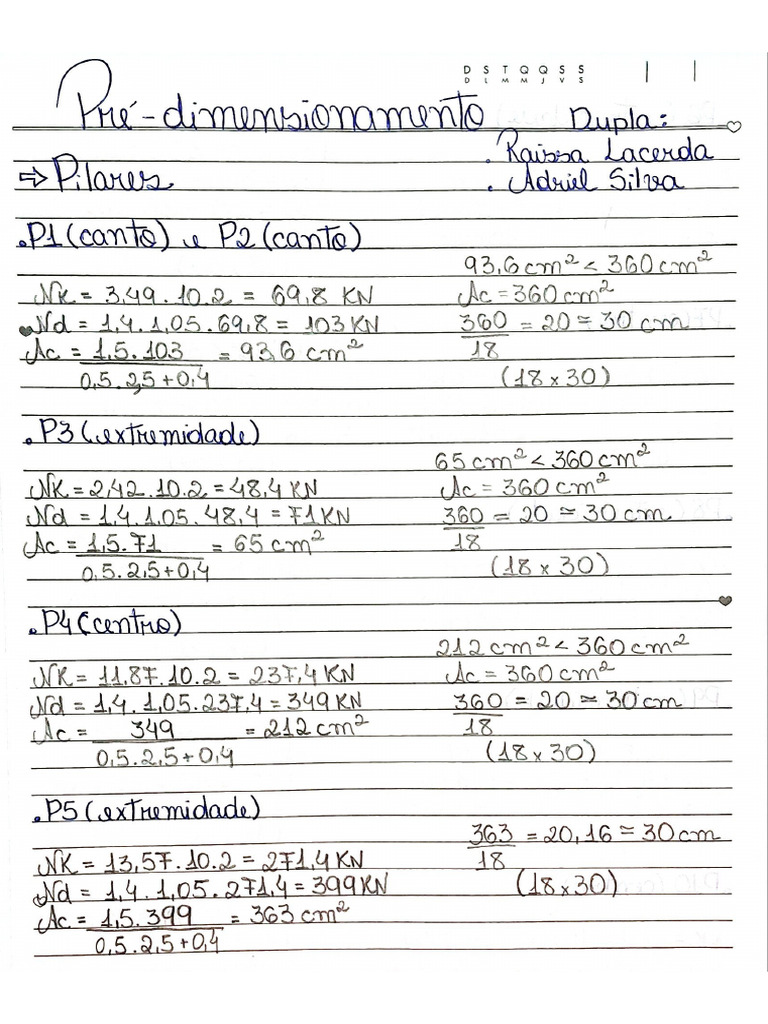 D S T Q Q S S
D L M M J V S
Pré-dimensionamento Dupla:
. Raissa Lacerda
⇒ Pilares . Adriel Silva
.P1 (canto) e P2 (canto)
93,6 cm² < 360 cm²
NK = 3,49 . 10 . 2 = 69,8 KN Ac = 360 cm²
Nd = 1,4 . 1,05 . 69,8 = 103 KN 360 = 20 ≃ 30 cm
Ac = 1,5 . 103 = 93,6 cm² 18
0,5 . 2,5 + 0,4 (18 x 30)
.P3 (extremidade)
65 cm² < 360 cm²
NK = 2,42 . 10 . 2 = 48,4 KN Ac = 360 cm²
Nd = 1,4 . 1,05 . 48,4 = 71 KN 360 = 20 ≃ 30 cm
Ac = 1,5 . 71 = 65 cm² 18
0,5 . 2,5 + 0,4 (18 x 30)
.P4 (centro)
212 cm² < 360 cm²
NK = 11,87 . 10 . 2 = 237,4 KN Ac = 360 cm²
Nd = 1,4 . 1,05 . 237,4 = 349 KN 360 = 20 ≃ 30 cm
Ac = 349 = 212 cm² 18
0,5 . 2,5 + 0,4 (18 x 30)
.P5 (extremidade)
363 = 20,16 ≃ 30 cm
NK = 13,57 . 10 . 2 = 271,4 KN 18
Nd = 1,4 . 1,05 . 271,4 = 399 KN (18 x 30)
Ac = 1,5 . 399 = 363 cm²
0,5 . 2,5 + 0,4